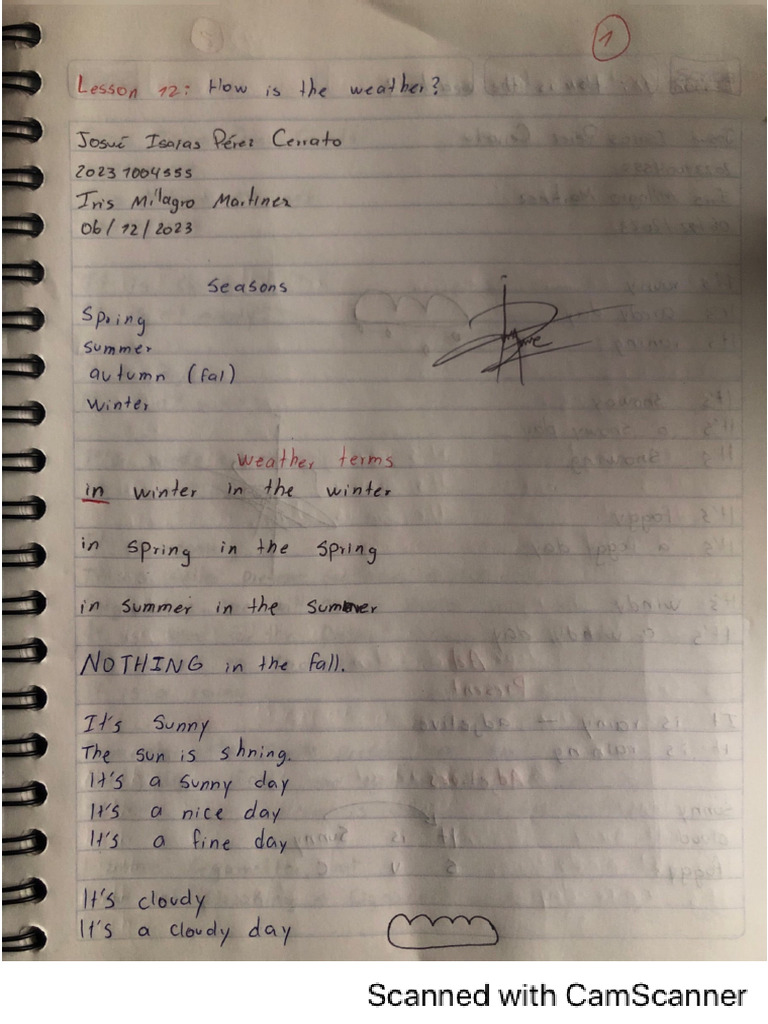 1
Lesson 12: How is the weather?
Josué Isaías Pérez Cerrato
20231004555
Iris Milagro Martinez
06/12/2023
Seasons
Spring
summer
autumn (fal)
winter
weather terms
in winter in the winter
in spring in the spring
in summer in the summer
NOTHING in the fall.
It's Sunny
The sun is shning.
It's a sunny day
It's a nice day
It's a fine day
It's cloudy
It's a cloudy day
Scanned with CamScanner